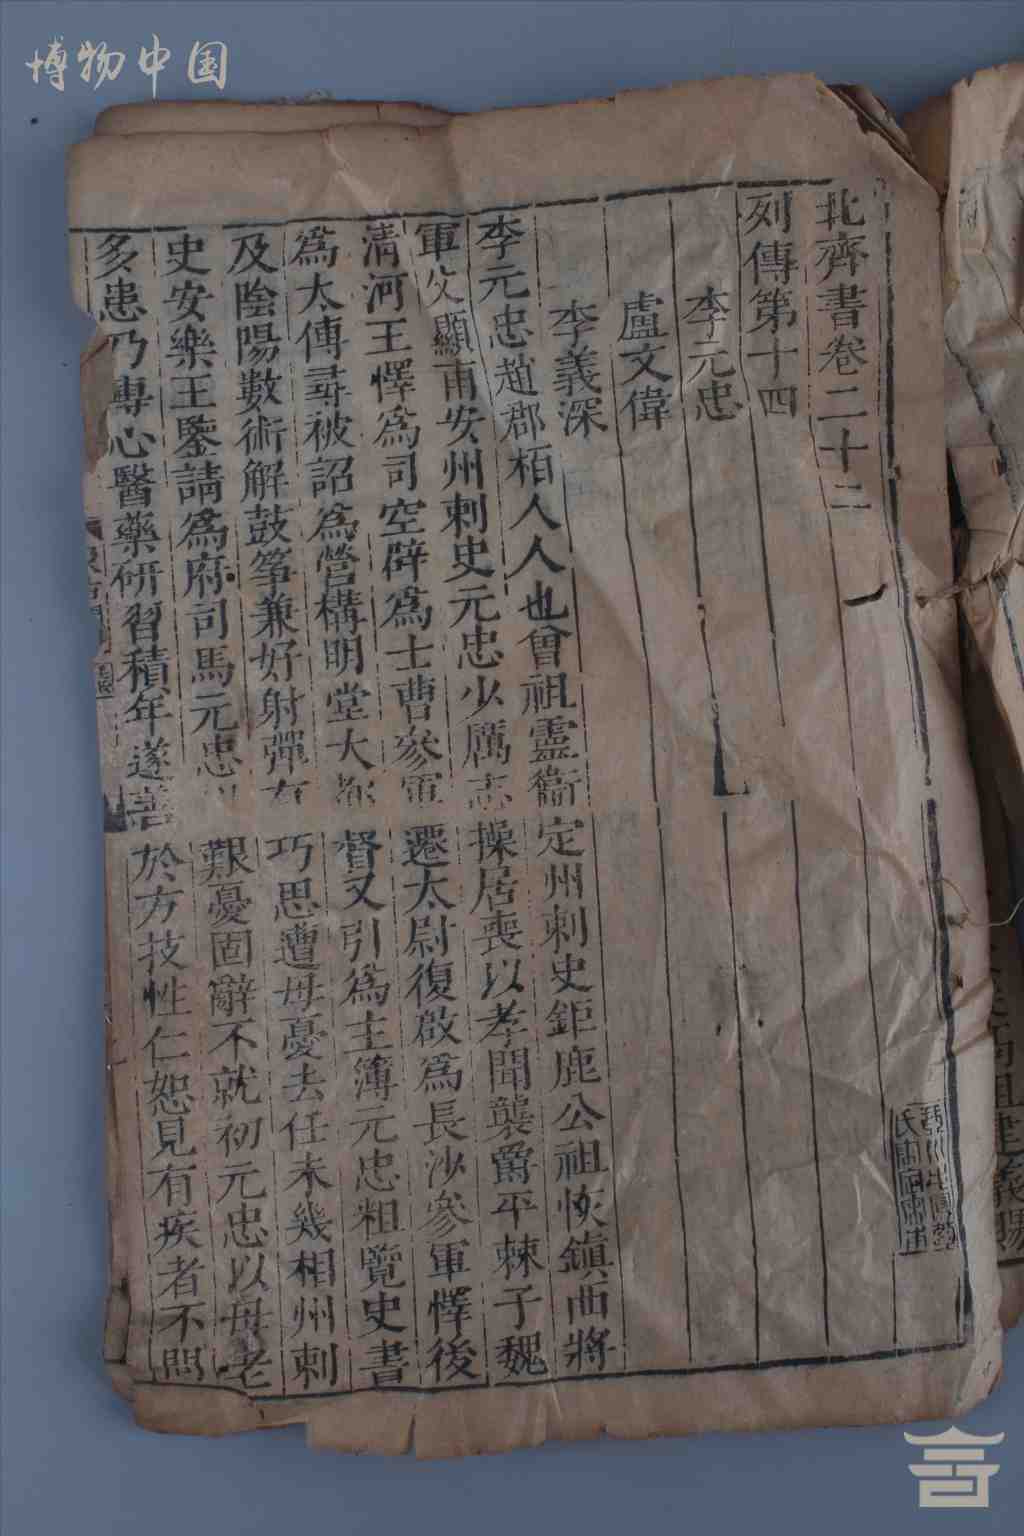 博物中国
北齊書卷二十二
列傳第十四
李元忠
盧文偉
李義深
李元忠趙郡栢人人也曾祖靈衞定州刺史鉅鹿公祖恢鎮西將
軍父顯甫安州刺史元忠少厲志操居喪以孝聞襲爵平棘子魏
清河王懌為司空辟為士曹參軍遷太尉復啟為長沙參軍懌後
為太傅尋被詔為營構明堂大都督又引為主簿元忠粗覽史書
及陰陽數術解鼓箏兼好射彈有巧思遭母憂去任未幾相州刺
史安樂王鑒請為府司馬元忠以艱憂固辭不就初元忠以母老
多患乃專心醫藥研習積年遂善於方技性仁恕見有疾者不問